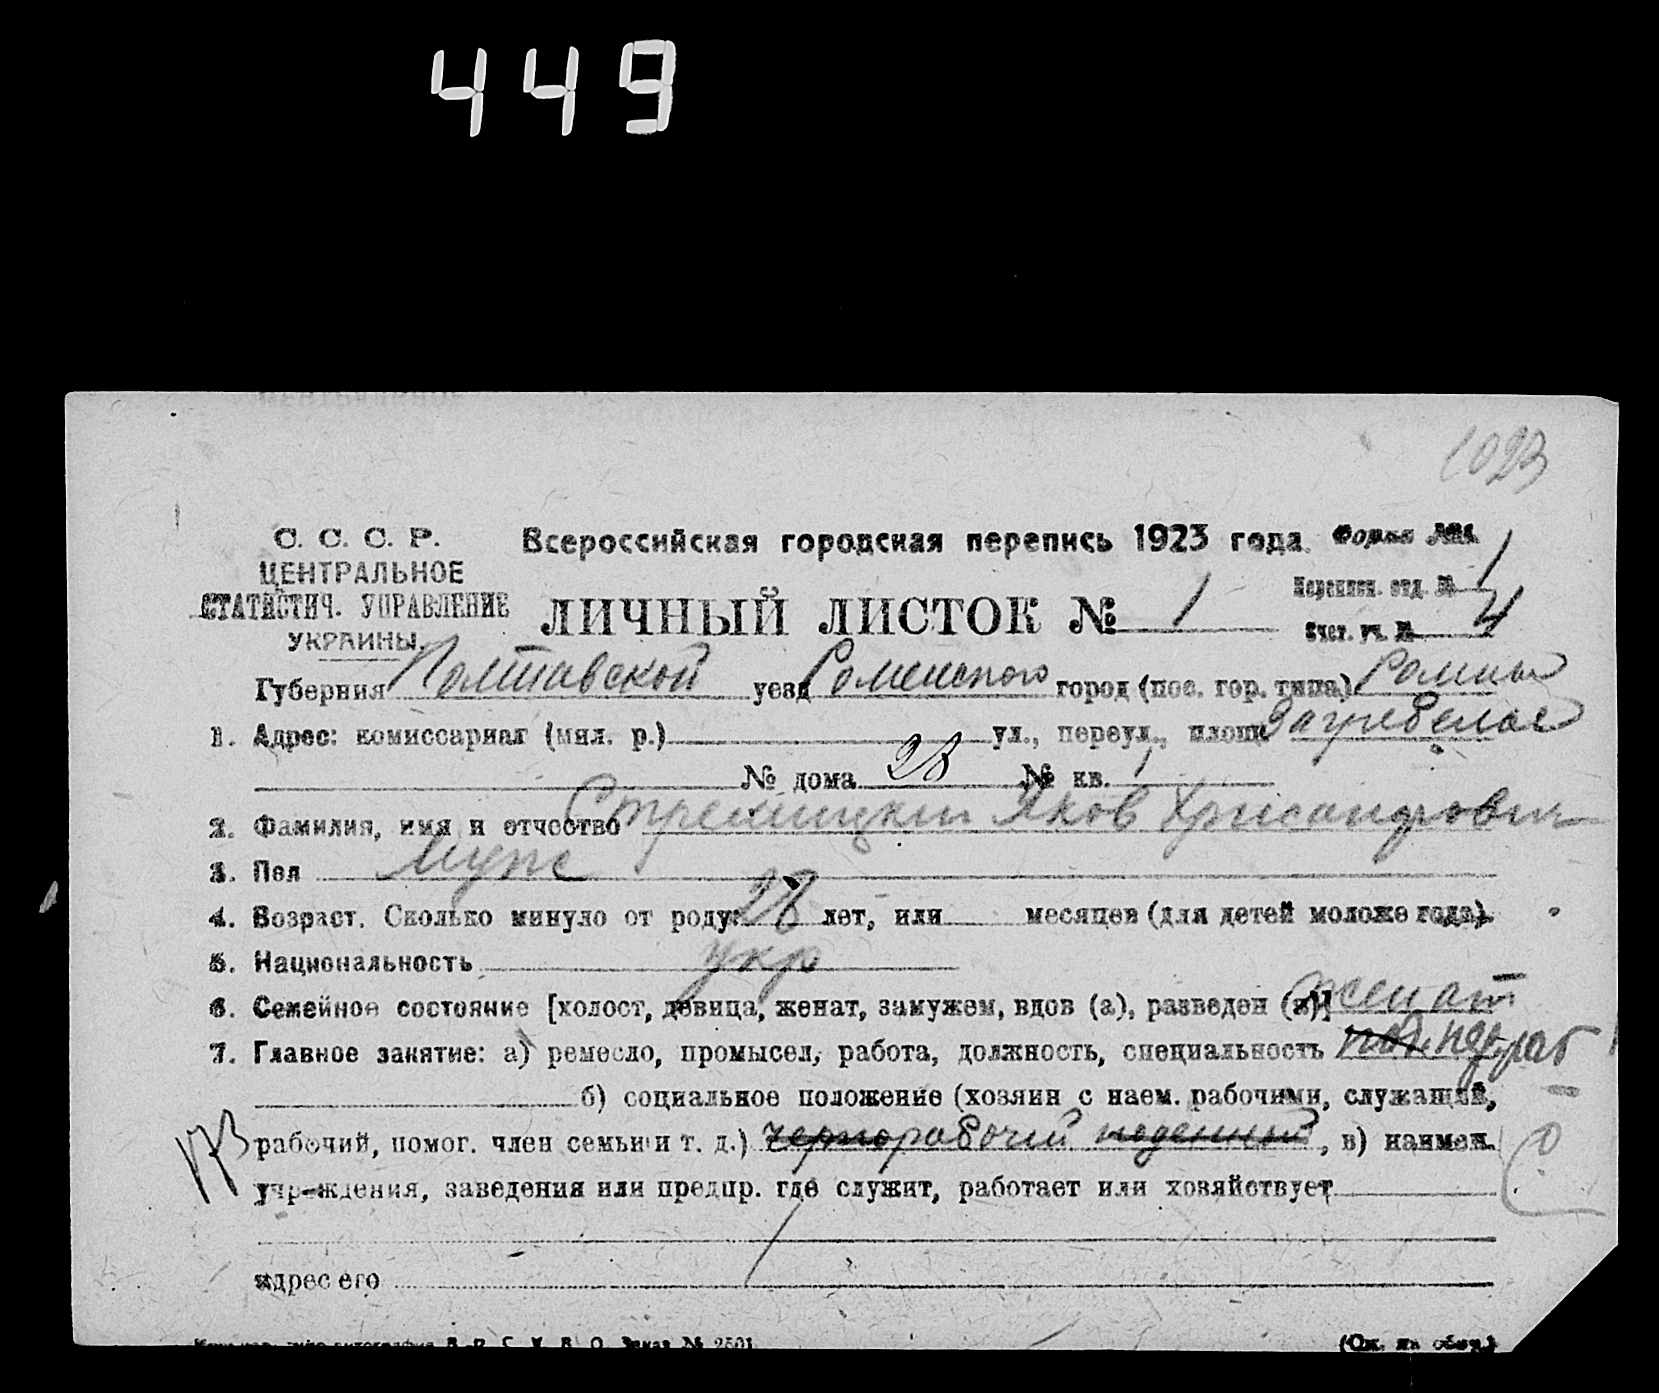 449
1023
С. С. С. Р.
ЦЕНТРАЛЬНОЕ
СТАТИСТИЧ. УПРАВЛЕНИЕ
УКРАИНЫ.
Всероссийская городская перепись 1923 года. Форма №1
ЛИЧНЫЙ ЛИСТОК № 1
Переписн. отд. № 1
Счет. уч. № 4
Губерния Полтавской уезд Роменского город (пос. гор. типа) Ромны
1. Адрес: комиссариат (мил. р.) ул., переул., площ. Загребелье
№ дома 28 № кв. 1
2. Фамилия, имя и отчество Яков Хрисандрович
3. Пол Муж
4. Возраст. Сколько минуло от роду: 28 лет, или месяцев (для детей моложе года).
5. Национальность укр
6. Семейное состояние [холост, девица, женат, замужем, вдов (а), разведен (а)] женат
7. Главное занятие: а) ремесло, промысел, работа, должность, специальность чер. раб
б) социальное положение (хозяин с наем. рабочими, служащий,
рабочий, помог. член семьи и т. д.) чернорабочий поденный, в) наимен.
учреждения, заведения или предпр. где служит, работает или хозяйствует
адрес его
Заказ № 2501
(См. на обор.)